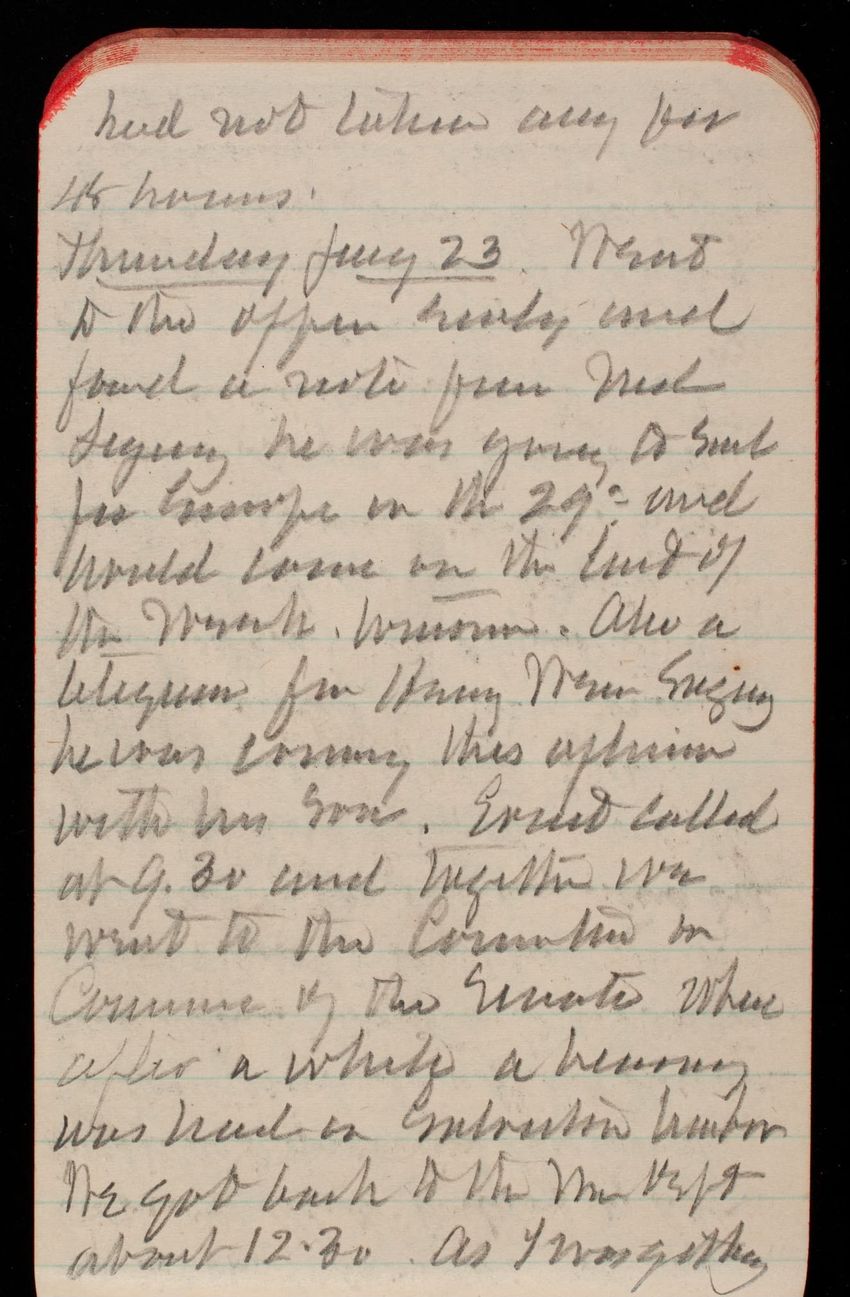 had not taken any for
48 hours.
Thursday Jany 23. Went
to the office early and
found a note from Ned
he was going to sail
for Europe on the 29" and
would come on the last of
the Week. Also a
telegram from Harry
he was coming this afternoon
with his Son. Ernest called
at 9.30 and together we
went to the Committee on
Commerce of the Senate where
after a while a hearing
was had on Galveston harbor
We got back to the War Dept
about 12.30. As I was getting